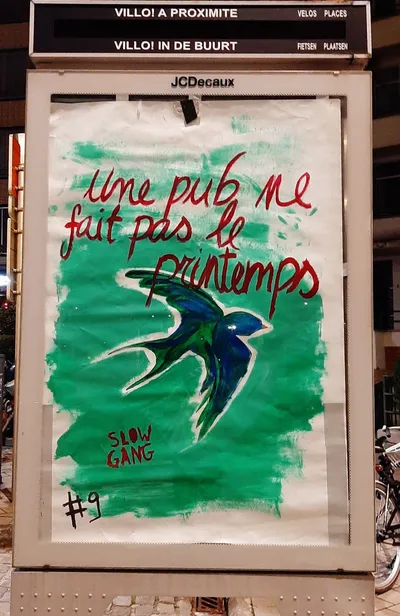 VILLO! A PROXIMITE VELOS PLACES
VILLO! IN DE BUURT FIETSEN PLAATSEN
JCDecaux
une pub ne
fait pas le
printemps
SLOW
GANG
#9